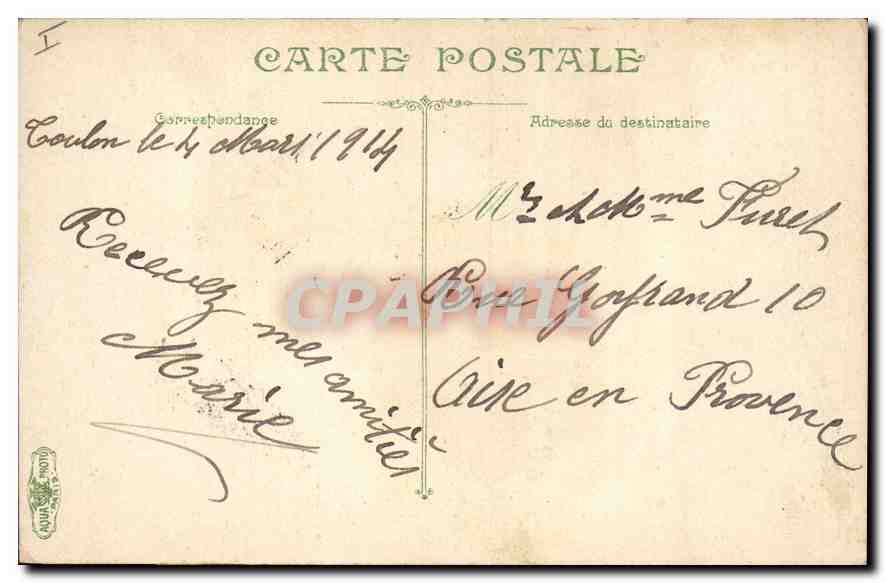 I
CARTE POSTALE
Correspondance
Toulon le 4 Mars 1914
Recevez mes amitiés
Marie
Adresse du destinataire
Mr et Mme Furet
Rue Goyrand 10
Aise en Provence
CPAPHIL
AQUA PHOTO
PARIS